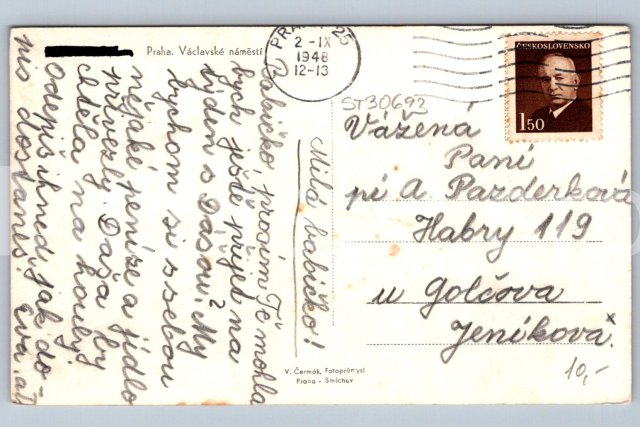 Praha. Václavské náměstí
PRAHA 25
2 -IX
1948
12-13
ČESKOSLOVENSKO
1 50
ST30693
Milá babičko!
Babičko prosím Tě mohla
bych ještě přijet na
týden s Dášou? My
bychom si s sebou
nějaké peníze a jídlo
přivezly. Dáša by
chtěla na houby.
Odepiš ihned, jak do-
pis dostaneš. Eva.
Vážená
Paní
pí A. Pazderková
Habry 119
u Golčova
Jeníkova.
10,-
V. Čermák, Fotoprůmysl
Praha - Smíchov